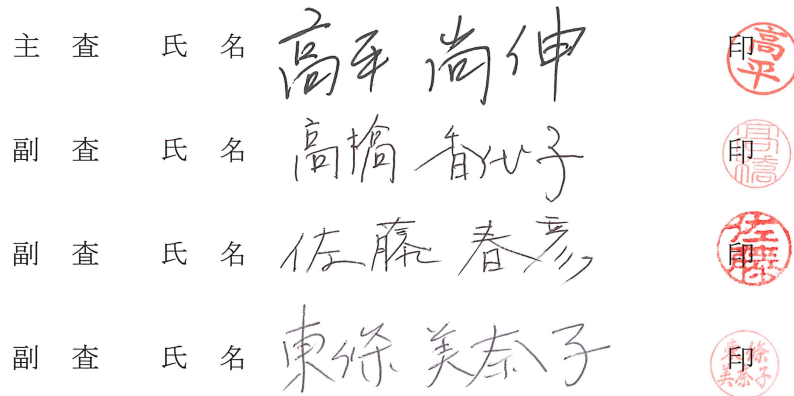 主 査 氏 名 高平 尚伸 印 高平
副 査 氏 名 高橋 香代子 印 高橋
副 査 氏 名 佐藤 春彦 印 佐藤
副 査 氏 名 東條 美奈子 印 東條美奈子